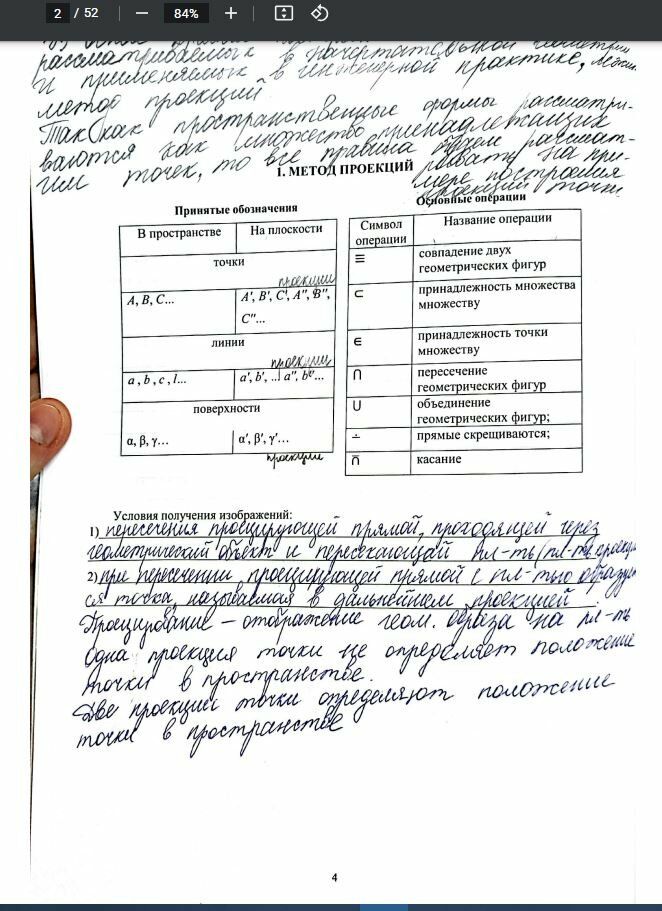 2 / 52 — 84% +
рассматриваемых в начертательной геометрии
и применяемых в инженерной практике, лежит
метод проекций
Так как пространственные формы рассматри-
ваются как множество принадлежащих
им точек, то все правила будем рассмат-
ривать на при-
мере построения
проекций точки
1. МЕТОД ПРОЕКЦИЙ
Принятые обозначения
В пространстве На плоскости
точки
проекции
A, B, C... A', B', C', A'', B'',
C''...
линии
проекции
a, b, c, l... a', b', ... a'', b''...
поверхности
α, β, γ... α', β', γ'...
проекции
Основные операции
Символ операции Название операции
≡ совпадение двух
геометрических фигур
⊂ принадлежность множества
множеству
∈ принадлежность точки
множеству
∩ пересечение
геометрических фигур
∪ объединение
геометрических фигур;
∸ прямые скрещиваются;
∩̅ касание
Условия получения изображений:
1) пересечения проецирующей прямой, проходящей через
геометрический объект и пересекающей пл-ть (пл-ть проекц
2) при пересечении проецирующей прямой с пл-тью образует
ся точка, называемая в дальнейшем проекцией
Проецирование – отображение геом. образа на пл-ть
Одна проекция точки не определяет положение
точки в пространстве.
Две проекции точки определяют положение
точки в пространстве
4